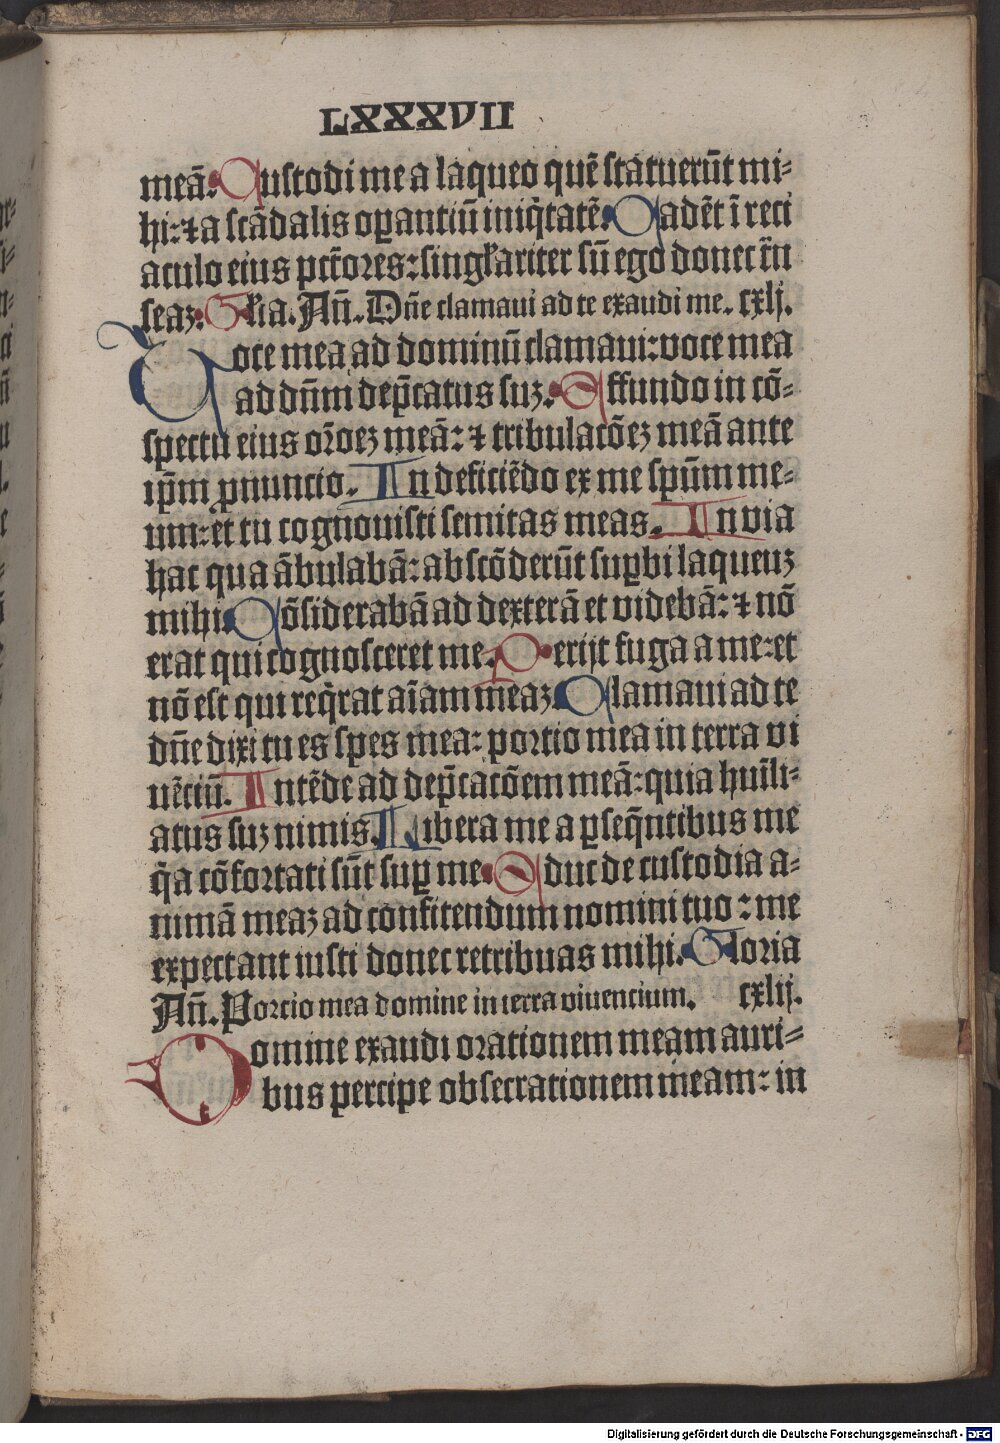 LXXXVII
meā. Custodi me a laqueo quē statuerūt mi⸗
hi: ⁊ a scādalis oꝑantiū iniq̄tatē. Cadēt ī reti
aculo eius pctōres: singłariter sū ego donec trā
seaꝫ. Głia. Añ. Dñe clamaui ad te exaudi me. cxlj.
Uoce mea ad dominū clamaui: voce mea
ad dñm dep̄catus suꝫ. Effundo in cō⸗
spectu eius orōeꝫ meā: ⁊ tribulatōeꝫ meā ante
ip̄m ꝓnuncio. In deficiēdo ex me spūm me⸗
um: et tu cognouisti semitas meas. In via
hac qua ābulabā: abscōderūt suꝑbi laqueuꝫ
mihi. Cōsiderabā ad dexterā et videbā: ⁊ nō
erat qui cognosceret me. Perijt fuga a me: et
nō est qui req̄rat aīam meaꝫ. Clamaui ad te
dñe dixi tu es spes mea: portio mea in terra vi
uēciū. Intēde ad dep̄catōem meā: quia huīli⸗
atus suꝫ nimis. Libera me a ꝑseq̄ntibus me
q̄a cōfortati sūt suꝑ me. Educ de custodia a⸗
nimā meaꝫ ad confitendum nomini tuo: me
expectant iusti donec retribuas mihi. Gloria
Añ. Portio mea domine in terra viuencium. cxlij.
Domine exaudi orationem meam auri⸗
bus percipe obsecrationem meam: in
Digitalisierung gefördert durch die Deutsche Forschungsgemeinschaft - DFG